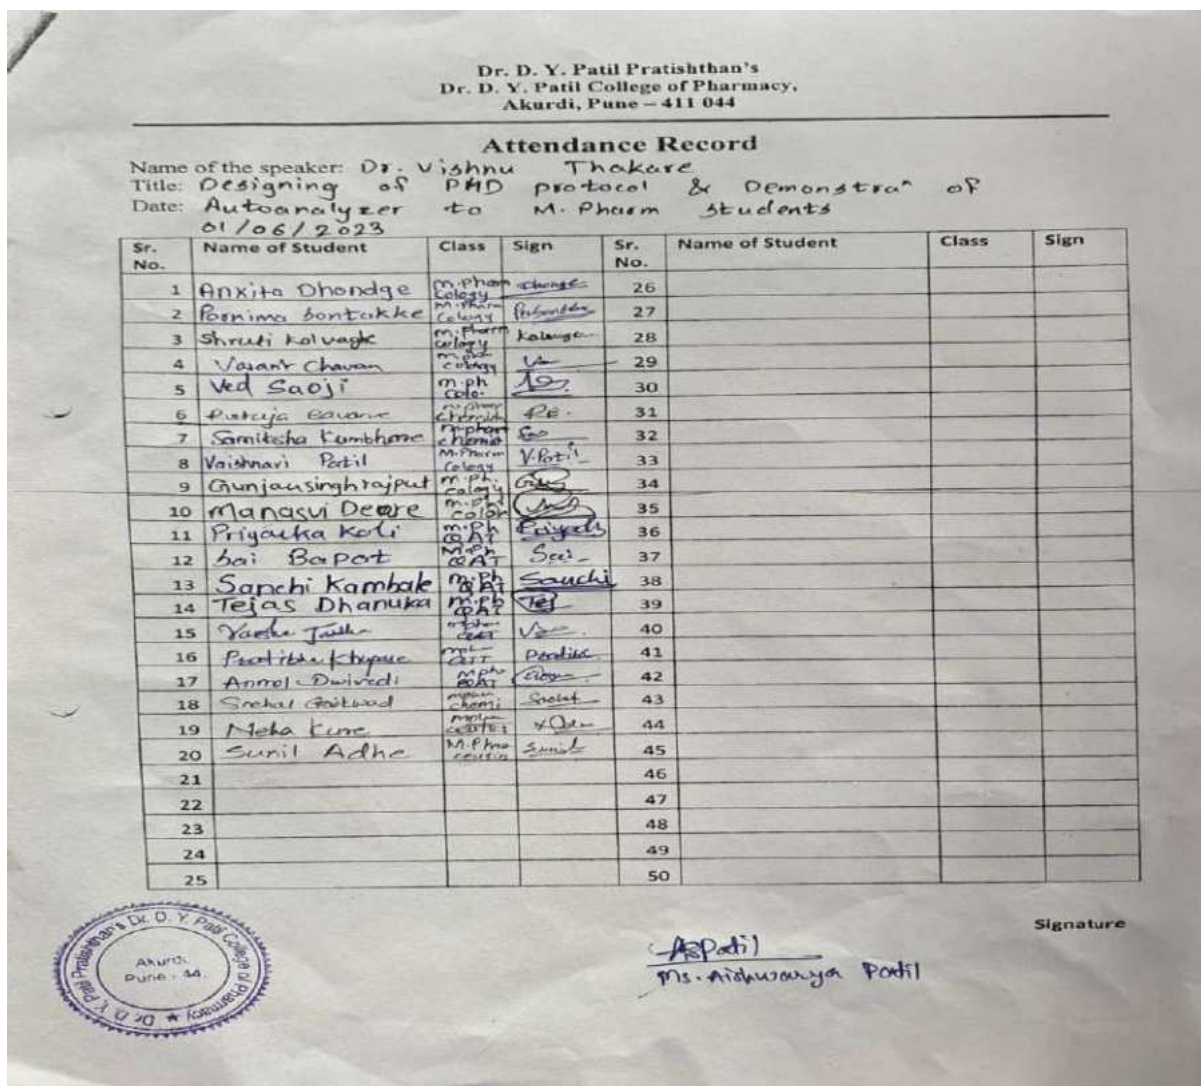 Dr. D. Y. Patil Pratishthan's
Dr. D. Y. Patil College of Pharmacy,
Akurdi, Pune – 411 044
Attendance Record
Name of the speaker: Dr. Vishnu Thakare
Title: Designing of PHD protocol & Demonstraⁿ of
Date: Autoanalyzer to M. Pharm students
01/06/2023
Sr. No. Name of Student Class Sign Sr. No. Name of Student Class Sign
1 Anxita Dhondge m.pharm cology 26
2 Poornima Sontakke M.Pharm cology 27
3 Shruti Kolvagk m.Pharm cology 28
4 Vasant Chavan cology 29
5 Ved Saoji m.ph colo. 30
6 31
7 Samiksha Kumbhare m.pharm chemis 32
8 Vaishnavi Patil M.Pharm cology V.Patil 33
9 Gunjansinghrajput m.ph. cology 34
10 Manasvi Deore m.ph 35
11 Priyanka Koli m.ph QAT 36
12 Sai Bapat M.Ph QAT Sai 37
13 Sanchi Kambale m.ph QAT Sanchi 38
14 Tejas Dhanuka m.ph QAT Tej 39
15 40
16 Pratibha 41
17 Anmol Dwivedi mph QAT 42
18 Snehal Gaikwad chemi Snehal 43
19 Neha 44
20 Sunil Adhe M.Pha ceutin Sunil 45
21 46
22 47
23 48
24 49
25 50
Signature
ASPatil
Ms. Aishwarya Patil
Dr. D. Y. Patil Pratishthan's Dr. D. Y. Patil College of Pharmacy
Akurdi
Pune - 44.